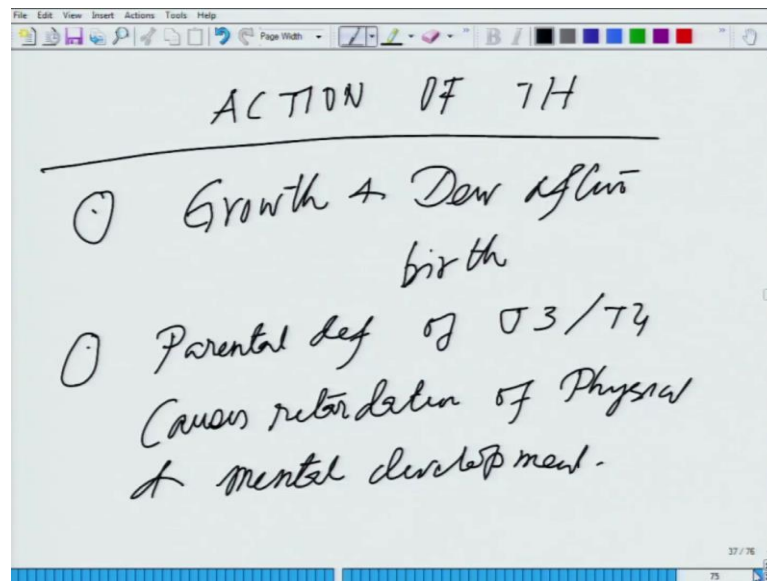 File Edit View Insert Actions Tools Help
Page Width
B I
ACTION OF TH
Growth & Dev after
birth
Parental def of T3/T4
Causes retardation of Physical
& mental development.
37 / 76
75